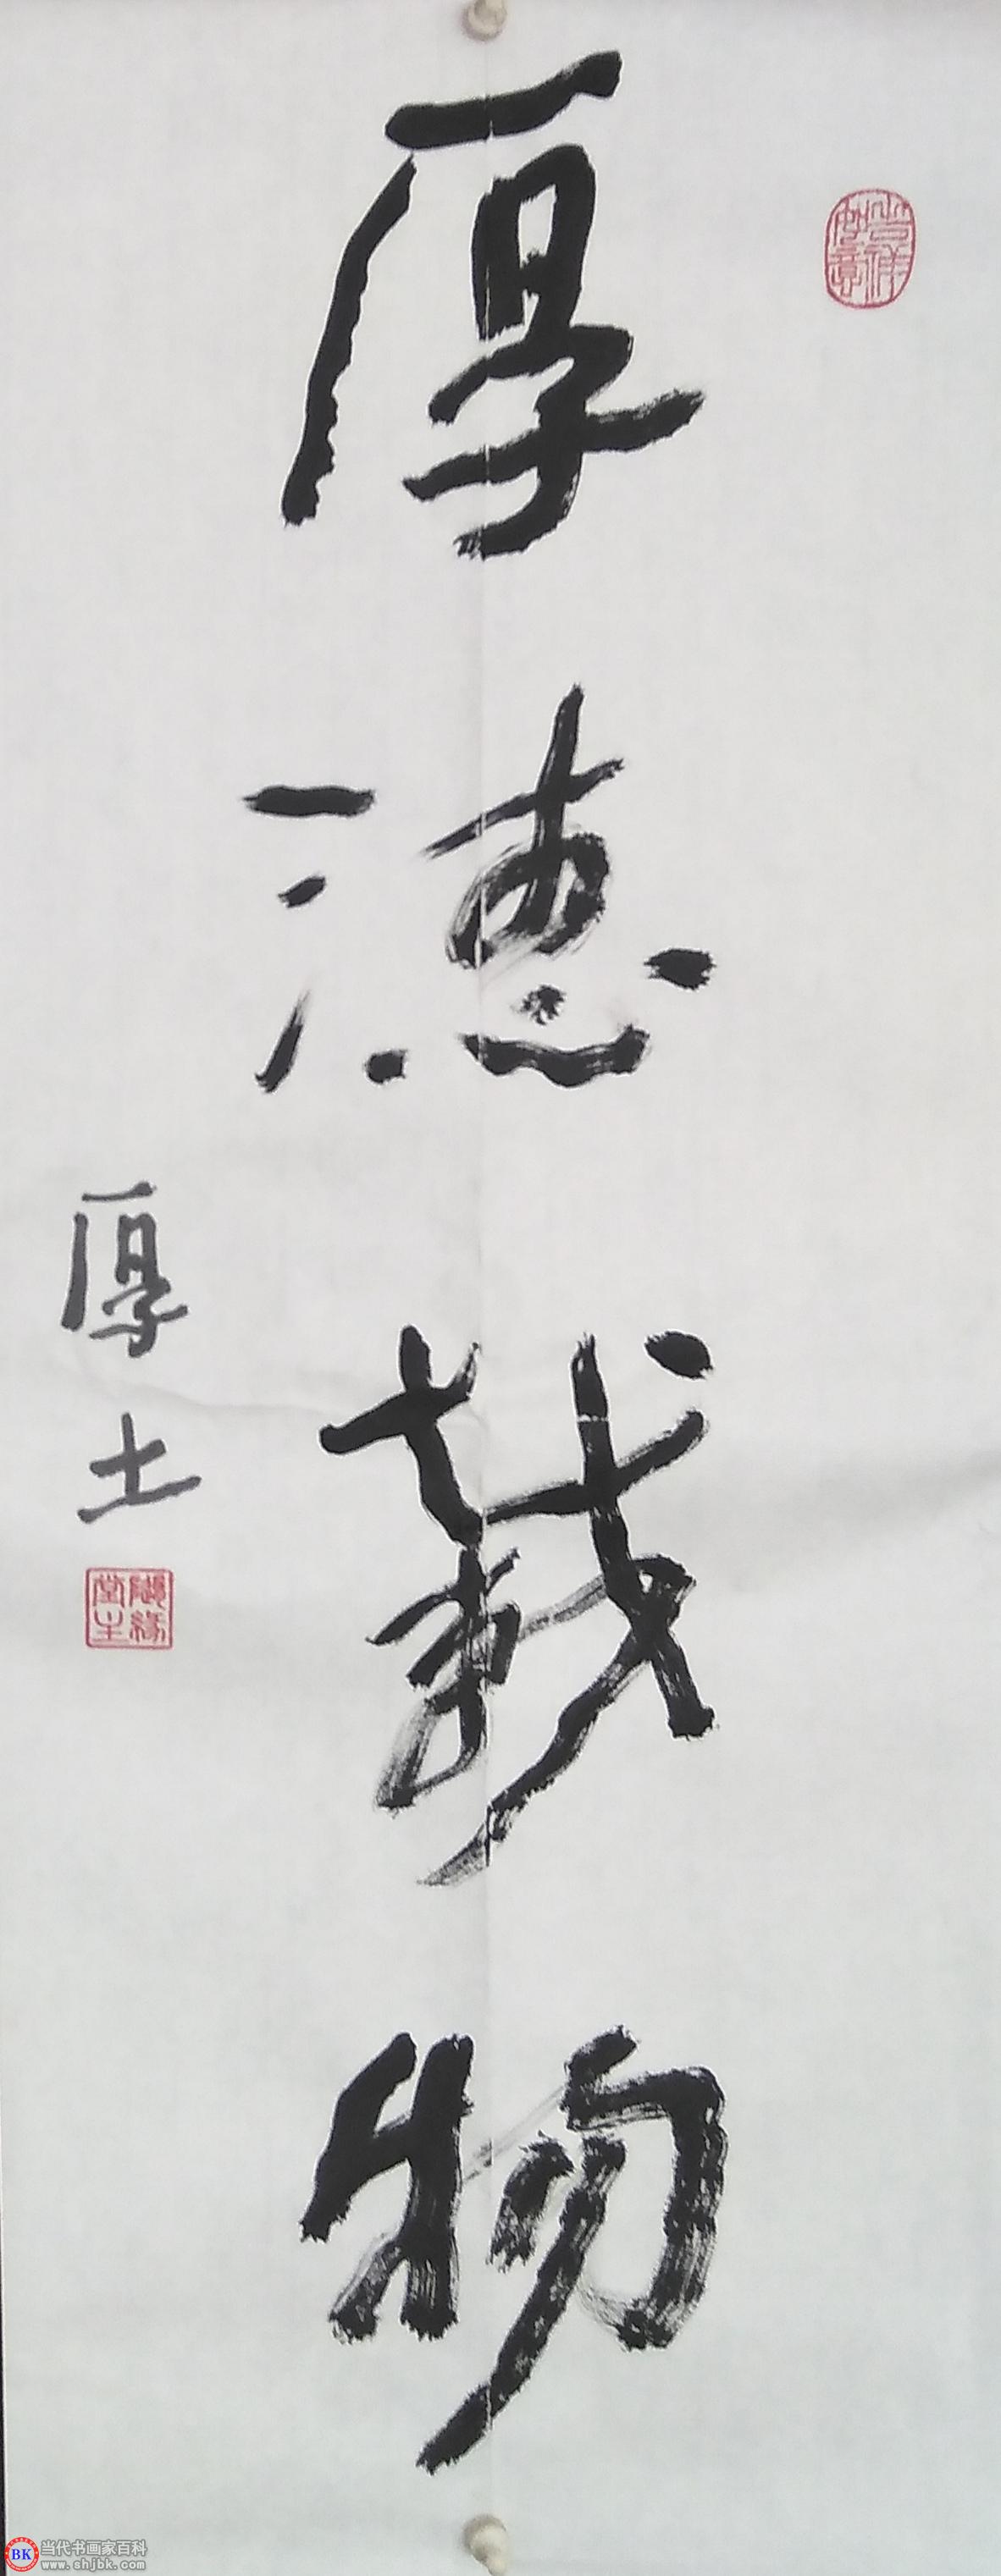 厚德载物
厚土
吉祥如意
BK 当代书画家百科
www.shjbk.com